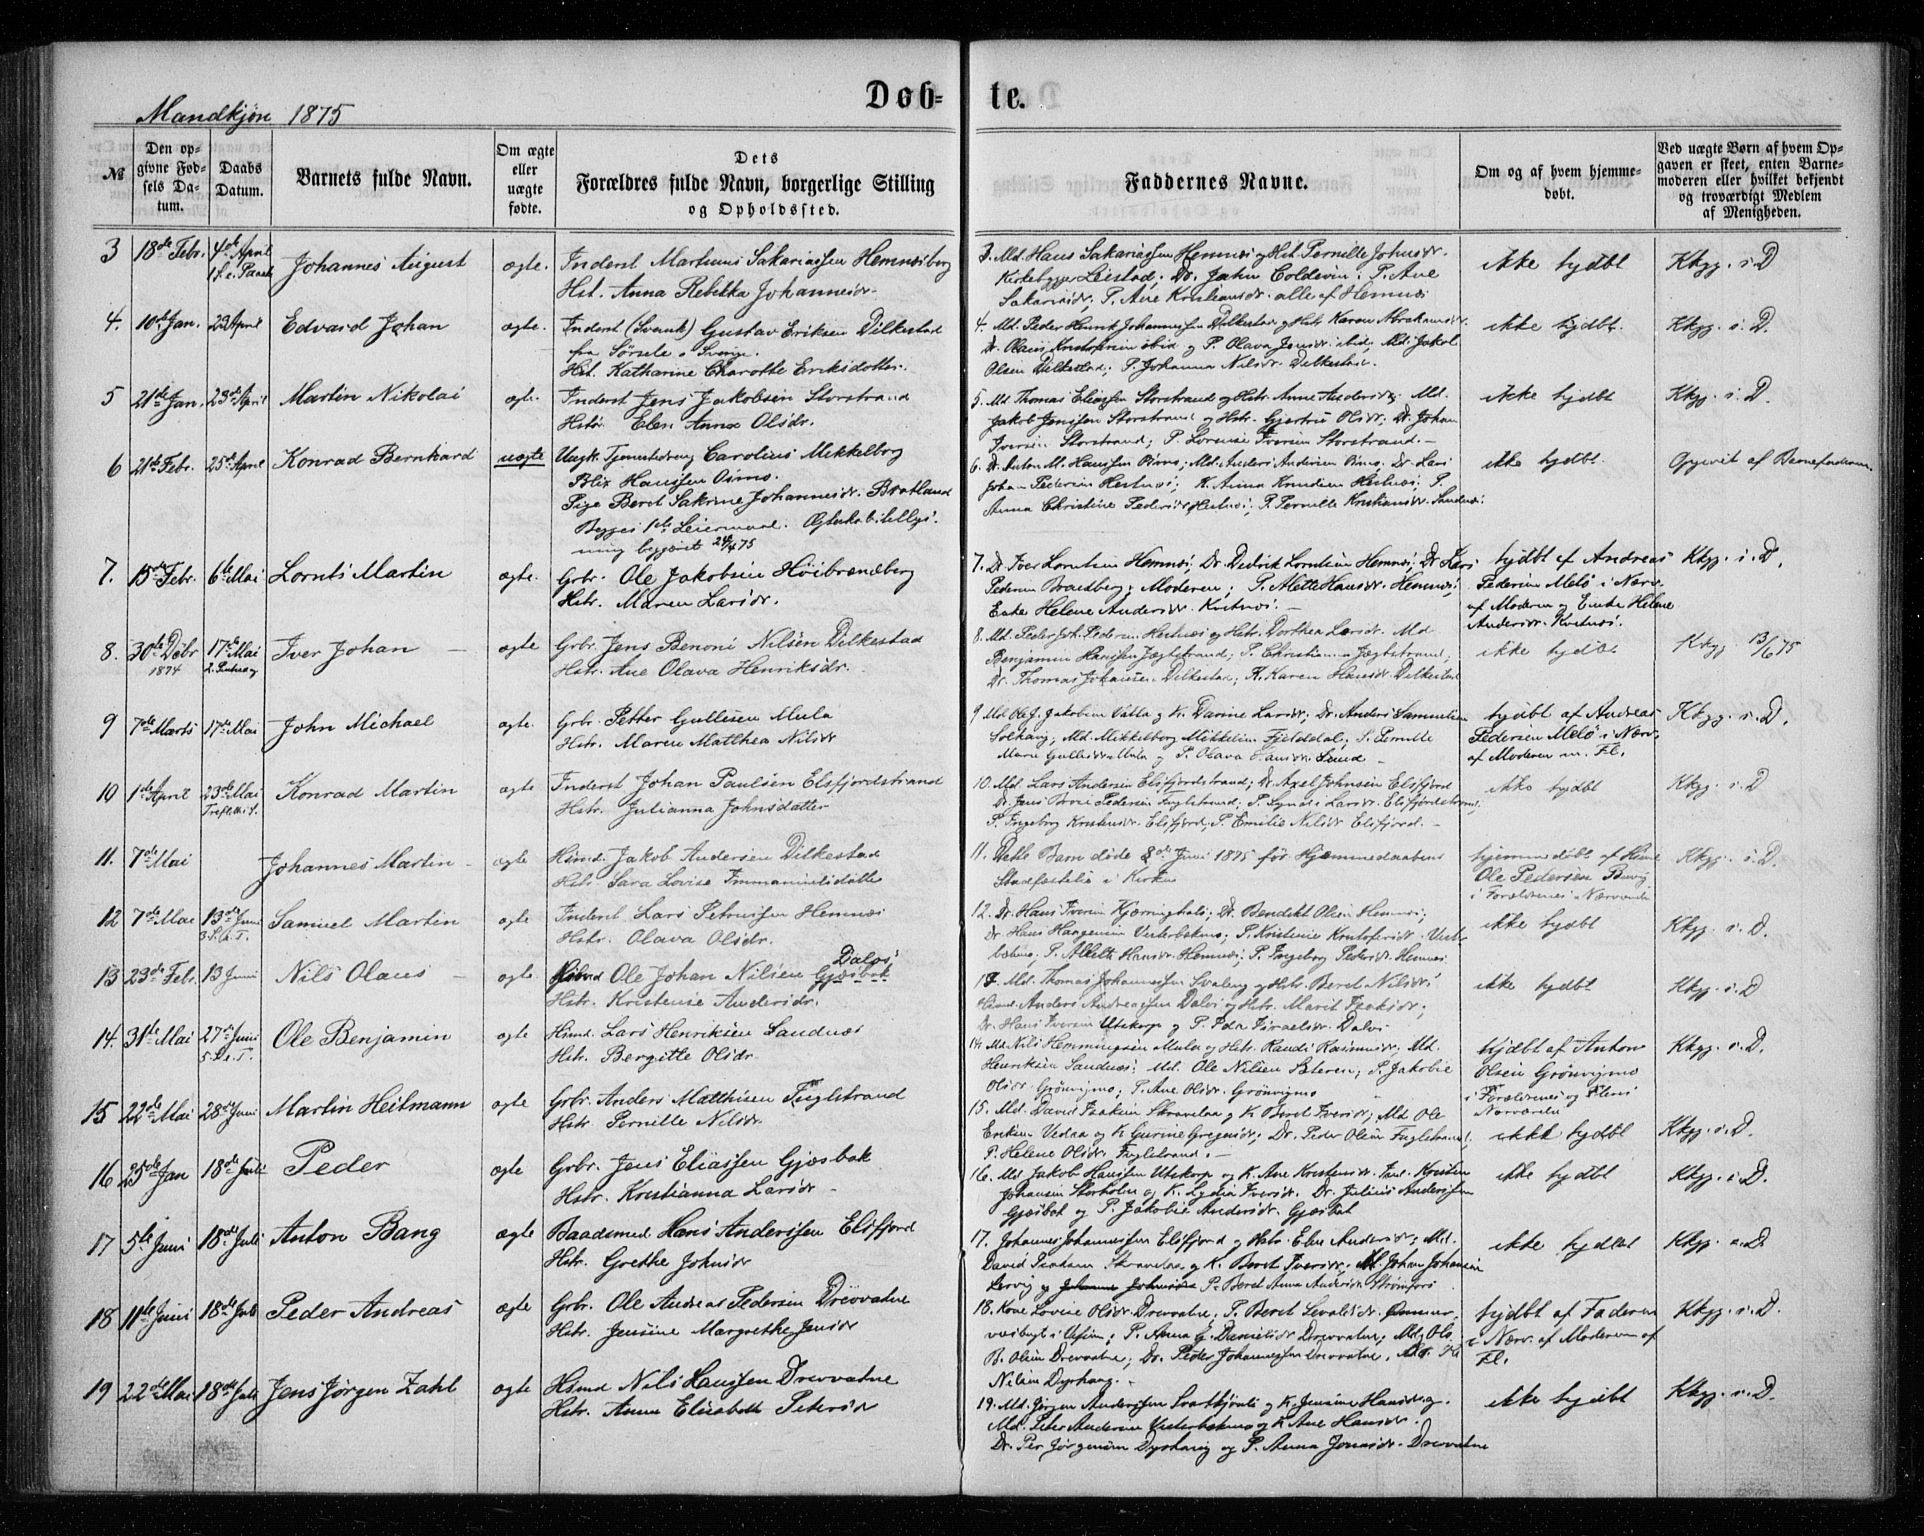 Døb-
te.
Mandkjøn 1875
№
Den op-
givne Fød-
sels Da-
tum.
Daabs
Datum.
Barnets fulde Navn.
Om ægte
eller
uægte
fødte.
Dets
Forældres fulde Navn, borgerlige Stilling
og Opholdssted.
Faddernes Navne.
Om og af hvem hjemme-
døbt.
Ved uægte Børn af hvem Op-
gaven er skeet, enten Barne-
moderen eller hvilket bekjendt
og troværdigt Medlem
af Menigheden.
3 18de Febr. 4de April Johannes August ægte. Inderst Martinus Sakariassen Hemnæsberg
1ste Paask
Hst. Anna Rebekka Johannesdr.
3. Md. Hans Sakariassen Hemnæs og Hst. Pernille Johnsdr.
Kirkebygger Leirstad; Dr. John Coldevin; P. Ane
Sakariasdr. P. Ane Kristiansdr. alle af Hemnæs
ikke hjdbt Kkgg. i. D
4. 10de Jan. 23 April Edvard Johan ægte. Inderst (Svensk) Gustav Eriksen Dilkestad
fra Sørsele i Sverige.
Hst. Katharine Charotte Eriksdotter.
4. Md. Peder Henrik Johannessen Dilkestad og Hstr Karen Abrahamsdr.
Dr. Olaus Kristofersen ibid og P. Olava Jensdr ibid, Md. Jakob
Olsen Dilkestad; P. Johanna Nilsdr Dilkestad.
ikke hjdbt. Kkgg. i. D.
5 21de Jan. 23de April Martin Nikolai ægte. Inderst Jens Jakobsen Storstrand
Hstr. Elen Anna Olsdr.
5. Md Thomas Eliassen Storstrand og Hstr. Anne Andersdr; Md.
Jakob Jensen Storstrand og Hstr. Gjertru Olsdr; Dr. Johan
Iversen Storstrand; P. Lorense Iversen Storstrand.
ikke hjdbt Kkgg. i. D.
6 21de Febr. 25de April Konrad Bernhard uægte Ungk. Tjenestedreng Carolius Mikkelborg
Blix Hanssen Osmo.
Pige Beret Sakrine Johannesdr. Bratland
Begges 1ste Leiermaal. Ægteskabstillys-
ning begjæret 24/4 75
6. Dr. Anton M. Hanssen Osmo; Md. Anders Andersen Osmo; Dr. Lars
Johan Pedersen Hestnæs; K. Anna Knudsen Hestnæs; P.
Anna Christine Pedersdr Hestnæs; P. Pernille Kristiansdr. Sandnæs.
ikke hjdbt. Opgivet af Barnefaderen
7. 15de Febr. 6te Mai Lornts Martin ægte. Grbr. Ole Jakobsen Høibrændberg
Hstr. Maren Larsdr.
7. Dr. Iver Lorntsen Hemnæs; Dr. Dedrik Lorntsen Hemnæs; Dr. Lars
Pedersen Brændberg; Moderen; P. Alette Hansdr. Hemnæs;
Enke Helene Andersdr. Kvitnæs.
hjdbt af Andreas
Pedersen Melø i Nærv.
af Moderen og Enke Helene
Andersdr. Kvitnæs.
Kkgg. i. D.
8. 30te Dcbr 17de Mai Iver Johan ægte Grbr. Jens Benoni Nilsen Dilkestad
1874
Hstr. Ane Olava Henriksdr.
8. Md. Peder Joh. Pedersen Hestnæs og Hstr. Dorthea Larsdr. Md
Benjamin Hansen Fuglstrand; P. Christianna Fuglstrand;
Dr. Thomas Johansen Dilkestad; K. Karen Hansdr Dilkestad
ikke hjdbt Kkgg. 13/6 75
9 7de Marts 17de Mai John Michael ægte. Grbr. Petter Gullesen Mula
Hstr. Maren Matthea Nilsdr
9 Md Ole J. Jakobsen Valla og K. Davine Larsdr; Dr. Anders Samuelsen
Solhaug; Md. Mikkelborg Mikkelsen Fjelddal; P. Pernille
Marie Gullesdr. Mula og P. Olava Hansdr. Sund
hjdbt af Andreas
Pedersen Melø i Nærv.
af Moderen m. Fl.
Kkgg. i. D.
10 1ste April 23de Mai Konrad Martin ægte Inderst Johan Paulsen Elsfjordstrand
Hstr. Julianna Johnsdatter
10. Md. Lars Andersen Elsfjordstrand; Dr. Axel Johnsen Elsfjord
Dr. Jens Brose Pedersen Fuglstrand; P. Lynæs Larsdr. Elsfjordstrand;
P. Ingeborg Kristensdr. Elsfjord; P. Emilie Nilsdr Elsfjord.
ikke hjdbt Kkgg. i. D
11. 7de Mai Johannes Martin ægte Hsmd. Jakob Andersen Dilkestad
Hstr. Sara Lovise Immanuelsdatter
11. Dette Barn døde 8de Juni 1875 før Hjemmedaabens
Stadfæstelse i Kirken
hjemmedøbt af Hsmd
Ole Pedersen
i Forældrenes Nærværelse
Kkgg. i. D.
12 7de Mai 13de Juni Samuel Martin ægte Inderst Lars Petersen Hemnæs
3. S. e. T.
Hstr. Olava Olsdr.
12. Dr. Hans Iversen Kjærringhals; Dr. Benedikt Olsen Hemnæs;
Dr. Hans Haagensen Vesterbekmo; P. Kristense Kristofersdr. Vester-
bekmo, P. Alette Hansdr. Hemnæs; P. Ingeborg Pedersdr. Hemnæs
ikke hjdbt Kkgg. i. D.
13 23de Febr. 13 Juni Nils Olaus ægte Hsmd Ole Johan Nilsen Gjæsbak Dalos
Hstr. Kristense Andersdr.
13. Md. Thomas Johannessen Svaleng og Hstr. Beret Nilsdr
Hsmd Anders Andreassen Dalos og Hstr. Marit Isaksdr;
Dr. Hans Iversen Utskorpe og P. Peda Israelsdr. Dalos
ikke hjdbt Kkgg. i. D
14. 31te Mai 27de Juni Ole Benjamin ægte Hsmd. Lars Henriksen Sandnæs
5. S. e. T.
Hstr. Bergitte Olsdr.
14. Md. Nils Hemmingsen Mula og Hstr. Randi Rasmusdr; Md.
Henriksen Sandnæs; Md. Ole Nilsen Sæteren; P. Jakobie
Olsdr. Grønvigmo; P. Ane Olsdr. Grønvigmo
hjdbt af Anton
Olsen Grønvigmo
i Forældrenes og Fleres
Nærværelse
Kkgg. i. D.
15 22de Mai 28de Juni Martin Heitmann ægte Grbr. Anders Matthisen Fuglstrand
Hstr. Pernille Nilsdr.
15. Md. David Isaksen Skravelaa og K. Beret Iversdr; Md Ole
Eriksen Vedaa og K Gurine Gregusdr; Dr. Peder Olsen Fuglstrand;
P. Helene Olsdr. Fuglstrand.
ikke hjdbt Kkgg. i. D.
16 25de Jan 18de Juli Peder ægte Grbr. Jens Eliassen Gjæsbak
Hstr. Kristianna Larsdr
16. Md Jakob Hansen Utskorpe og K. Ane Kristensdr. Kristen
Johansen Storholm og K. Lydia Iversdr. Dr. Julius Andersen
Gjæsbak og P. Jakobie Andersdr. Gjæsbak
ikke hjdbt Kkgg. i. D.
17 5te Juni 18de Juli Anton Bang ægte Baadsmd Hans Anderssen Elsfjord
Hstr. Grethe Johnsdr
17. Johannes Johannessen Elsfjord og Hstr. Elen Andersdr; Md.
David Isaksen Skravelaa og K. Beret Iversdr; Md. Johan Johansen
Lervig og Johanna Johnsdr P. Beret Anna Andersdr. Strømfors
ikke hjdbt Kkgg. i. D.
18 11te Juni 18de Juli Peder Andreas ægte Grbr. Ole Andreas Pedersen Drevvatne
Hstr. Jensine Margrethe Jensdr
18. Kone Lovise Olsdr. Drevvatne; P. Beret Sevaldsdr.
i Vefsen; P. Anna E. Danielsdr Drevvatne; Md. Ole
B. Olsen Drevvatne; Dr. Peder Johannessen Drevvatne, Md.
Nilsen Dyrhaug.
hjdbt af Faderen
i Nærv. af Moderen og
Fl.
Kkgg. i. D.
19 22de Mai 18de Juli Jens Jørgen Zahl ægte Hsmd Nils Hanssen Drevvatne
Hstr. Anne Elisabeth Petersdr
19. Md. Jørgen Andersen Svartkjønli og K. Jensine Hansdr. og
Md. Peter Andersen Vesterbekmo og K. Ane Hansdr.
Dr. Per Jørgensen Dyrhaug og P. Anna Jonasdr. Drevvatne
ikke hjdbt Kkgg. i. D.